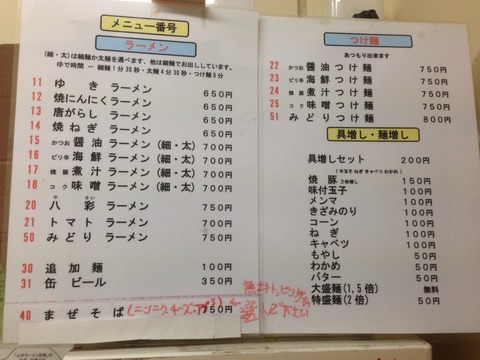 メニュー番号
ラーメン
(細・太)は細麺か太麺を選べます、他は細麺でお出ししています。
ゆで時間 ー 細麺1分30秒・太麺4分30秒・つけ麺8分
11 ゆき ラーメン 650円
12 焼にんにく ラーメン 650円
13 唐がらし ラーメン 650円
14 焼ねぎ ラーメン 650円
15 かつお 醤油 ラーメン (細・太) 700円
16 ピリ辛 海鮮 ラーメン (細・太) 700円
17 焼豚 煮汁 ラーメン (細・太) 700円
18 コク 味噌 ラーメン (細・太) 700円
20 八彩 ラーメン 750円
21 トマト ラーメン 700円
50 みどり ラーメン 750円
30 追加麺 100円
31 缶ビール 350円
40 まぜそば 750円
無料トッピングを
選んで下さい
つけ麺
あつもり出来ます
22 かつお 醤油つけ麺 750円
23 ピリ辛 海鮮つけ麺 750円
24 焼豚 煮汁つけ麺 750円
25 コク 味噌つけ麺 750円
51 みどりつけ麺 800円
具増し・麺増し
具増しセット 200円
(半玉子 ねぎ きゃべつ わかめ)
焼豚 2枚増し 150円
味付玉子 100円
メンマ 100円
きざみのり 100円
コーン 100円
ねぎ 100円
キャベツ 100円
もやし 50円
わかめ 50円
バター 50円
大盛麺(1,5倍) 無料
特盛麺(2倍) 50円